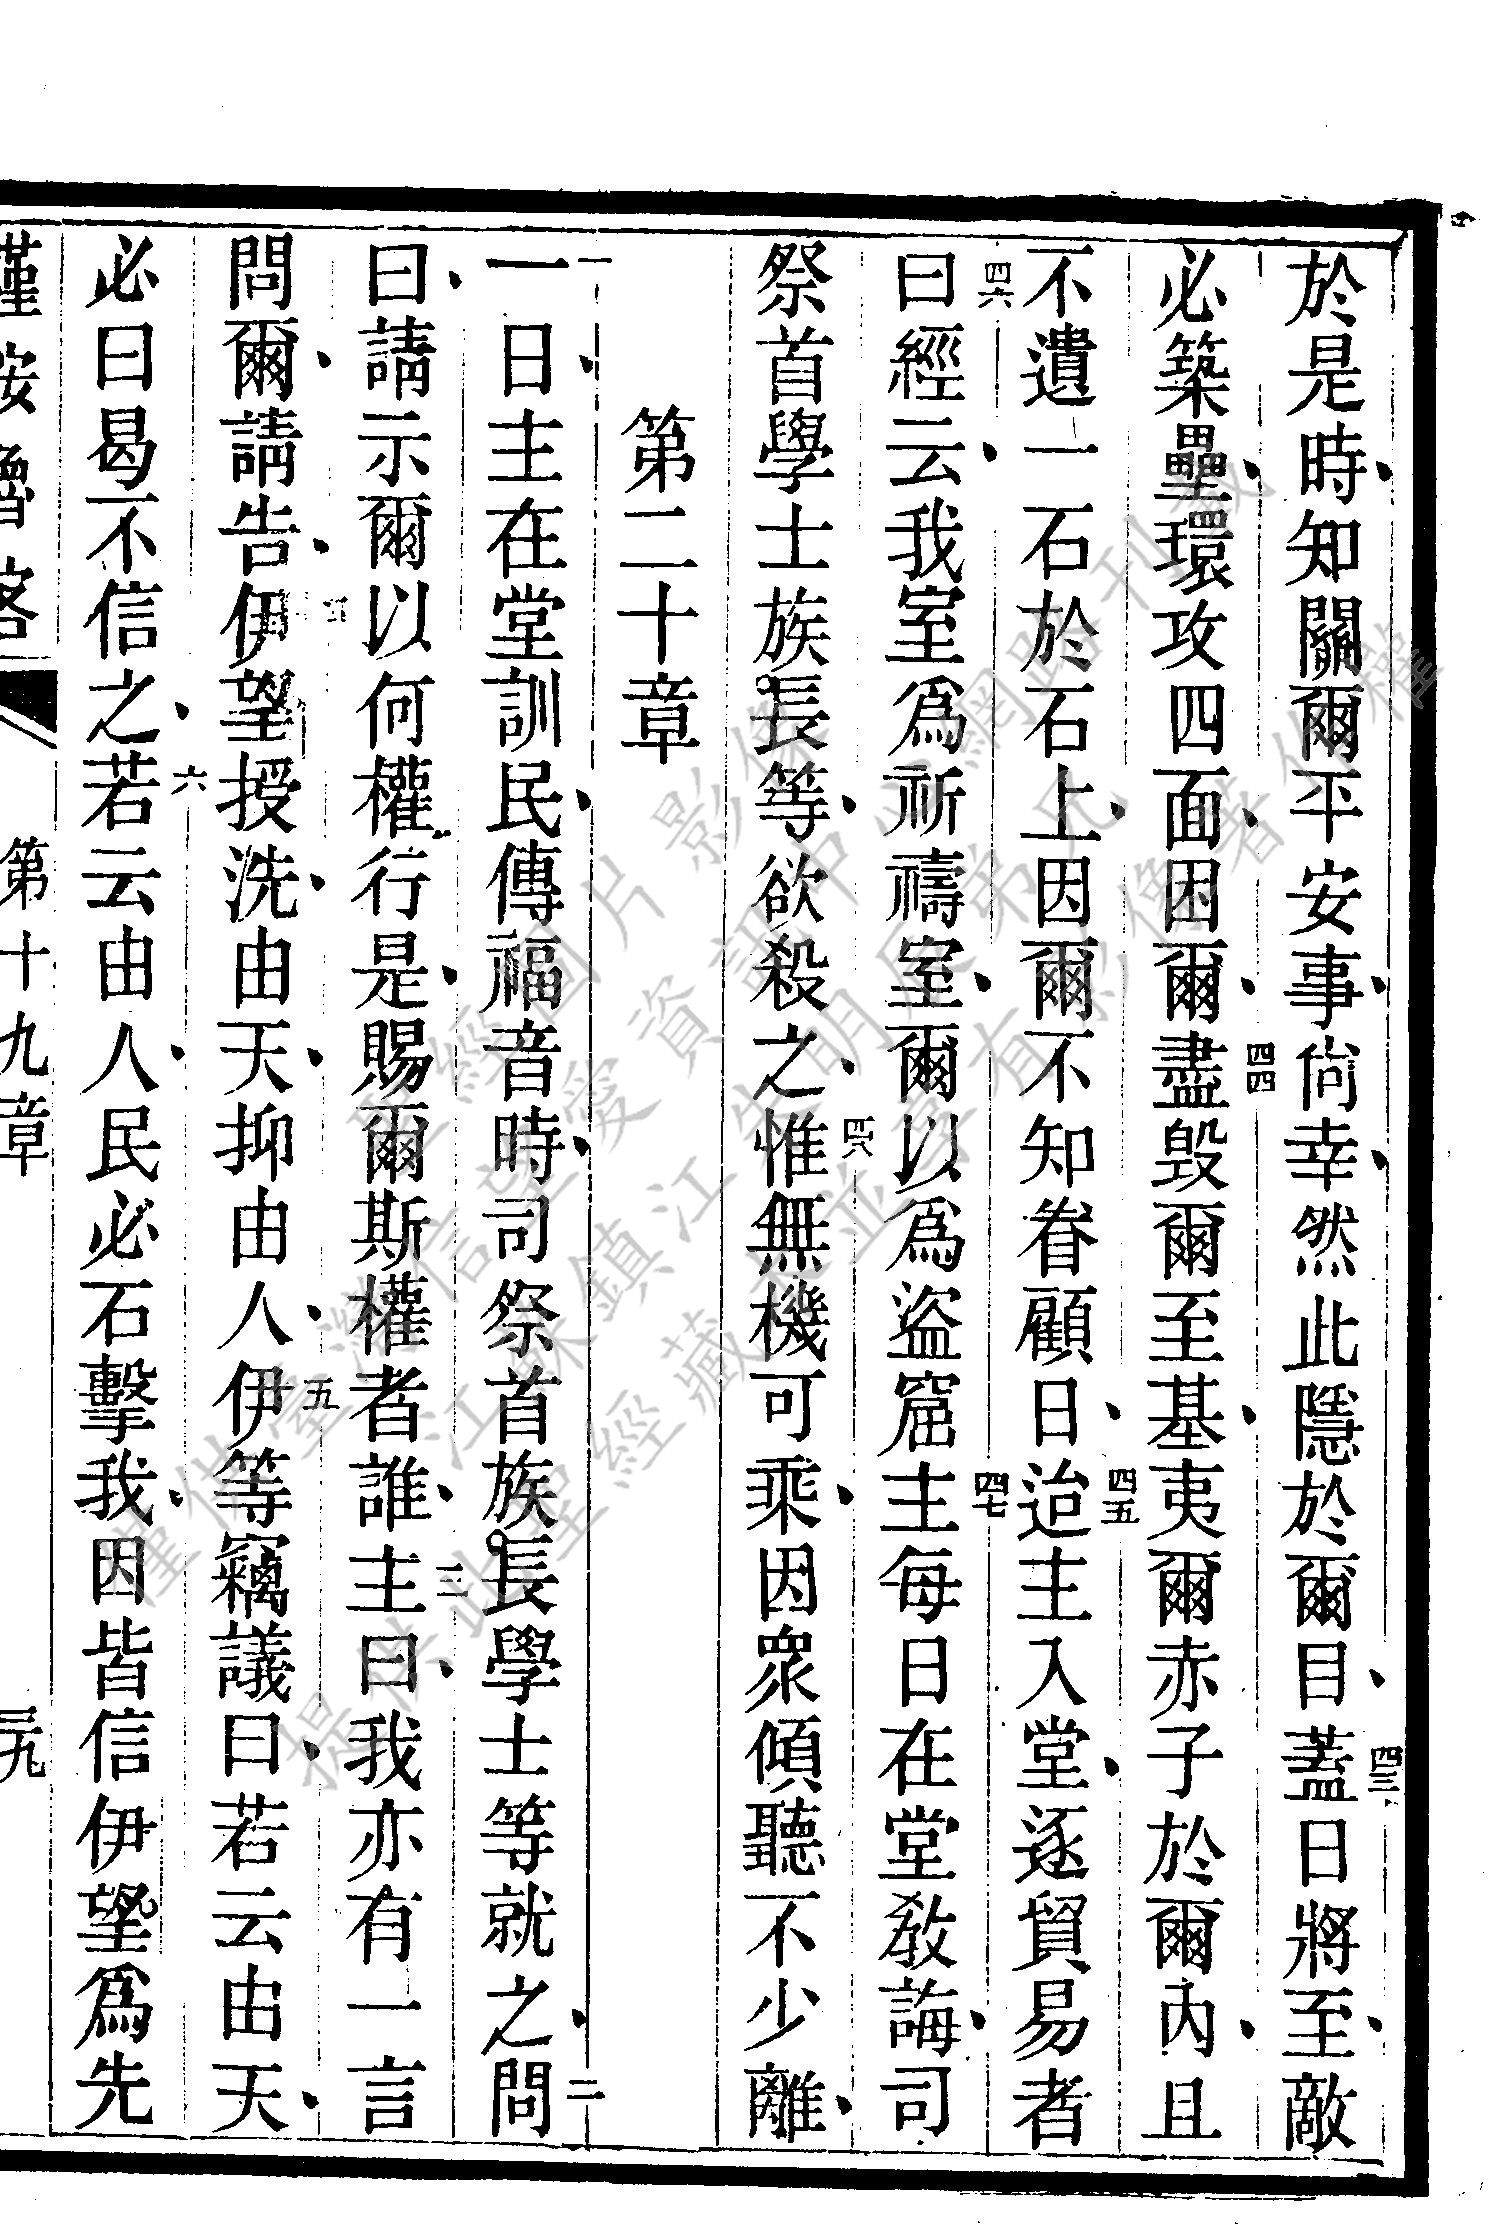 於是時、知關爾平安事、尙幸、然此隱於爾目、四三蓋日將至、敵
必築壘、環攻四面、因爾、四四盡毀爾至基、夷爾赤子於爾內、且
不遺一石於石上、因爾不知眷顧日、四五迨主入堂、逐貿易者
四六曰經云、我室爲祈禱室、爾以爲盜窟、四七主每日在堂教誨、司
祭首學士族長等、欲殺之、四八惟無機可乘、因衆傾聽不少離、
第二十章
一一日、主在堂訓民、傳福音時、司祭首族長學士等就之、二問
曰、請示爾以何權行是、賜爾斯權者誰、三主曰、我亦有一言
問爾、請告、四伊望授洗、由天、抑由人、五伊等竊議曰、若云由天、
必曰曷不信之、六若云由人、民必石擊我、因皆信伊望爲先
第十九章
三九